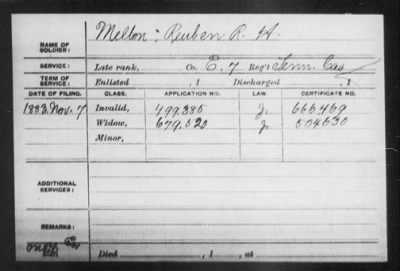 NAME OF SOLDIER: Mellon: Reuben R. H.
SERVICE: Late rank, Co. E. 7 Reg't Tenn. Cav
TERM OF SERVICE: Enlisted , 1 Discharged , 1
DATE OF FILING. CLASS. APPLICATION NO. LAW CERTIFICATE NO.
1883. Nov. 7 Invalid, 499.385 J. 665.469
Widow, 679.520 J. 504630
Minor,
ADDITIONAL SERVICES:
REMARKS:
Died , 1 , at